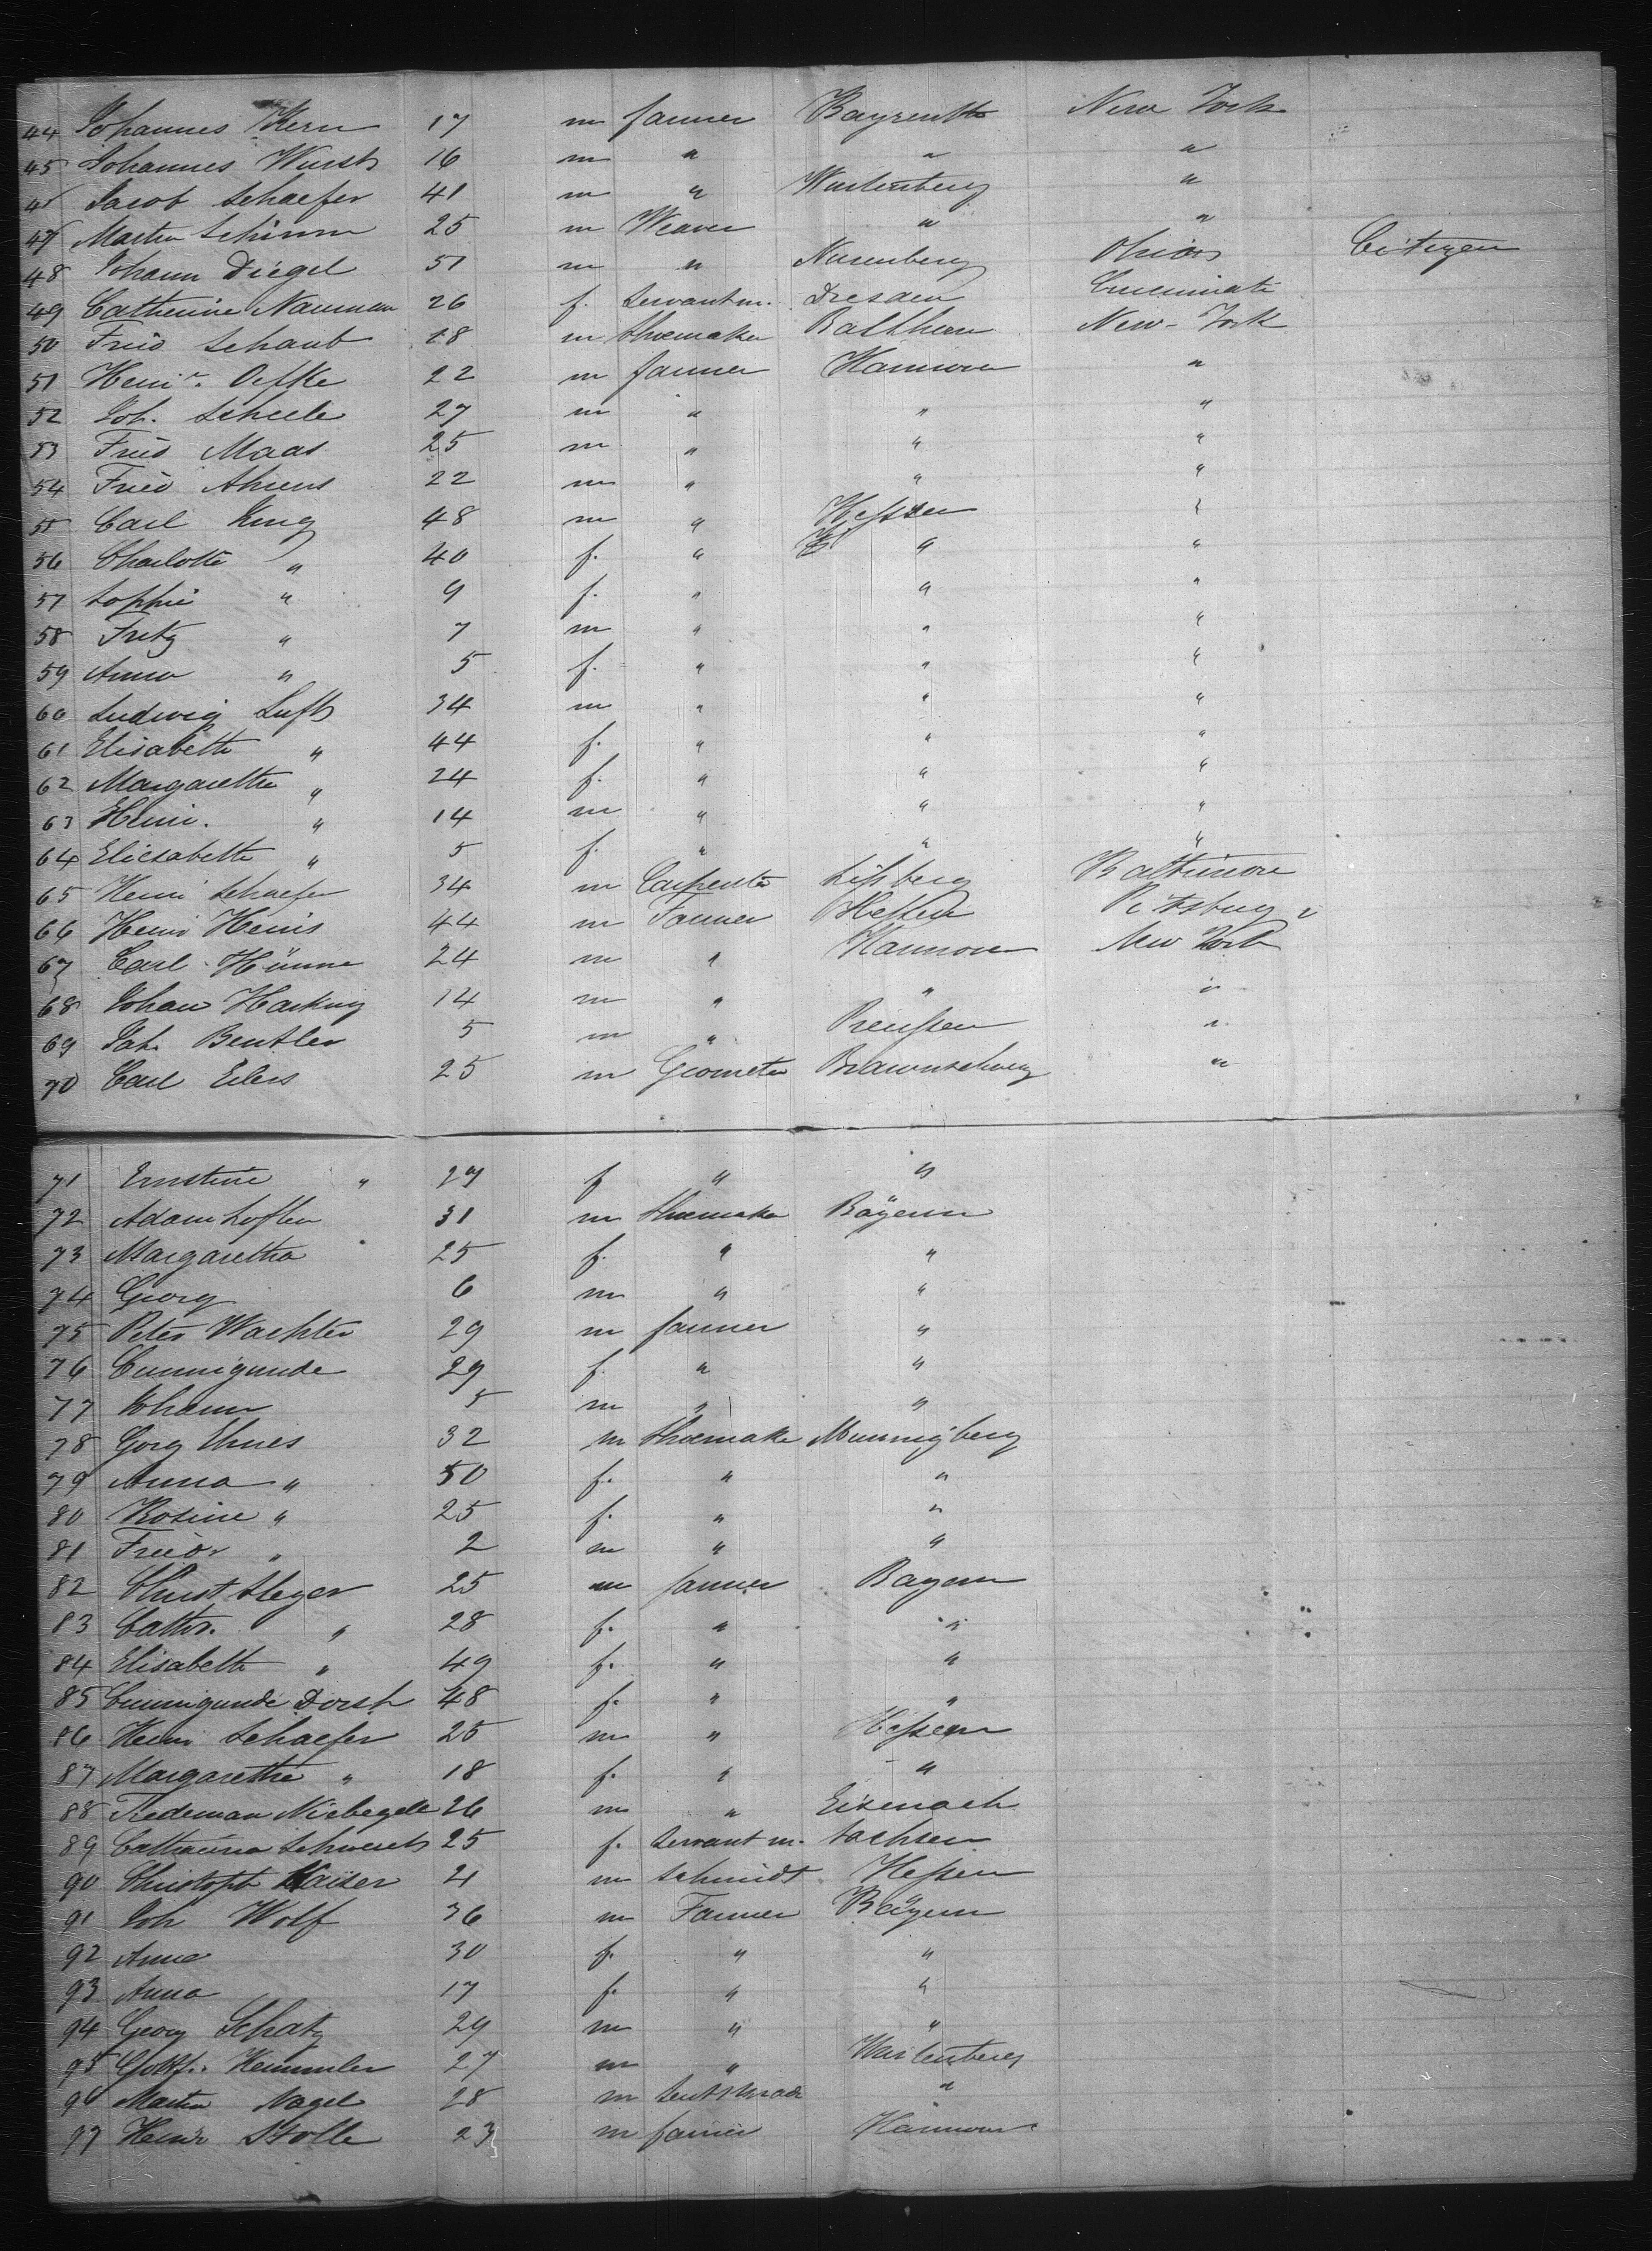 44 Johannes Kern 17 m farmer Bayreuth New York
45 Johannes Wurst 16 m " " "
Jacob Schaefer 41 m " Wurtenberg "
47 Martin Schimm 25 m Weaver " "
48 Johann Diegel 51 m " Nurenberg Ohio Citizen
49 Catherine Nauman 26 f. Servantm. Dresden Cincinnati
50 Fried Schaub 18 m Shoemaker New-York
51 Heinr. Oelfke 22 m farmer Hannover "
52 Joh. Scheele 27 m " " "
53 Fried Maas 25 m " " "
54 Fried Ahrens 22 m " " "
55 Carl Jung 48 m " Hessen "
56 Charlotte " 40 f. " " "
57 Sophie " 9 f. " " "
58 Fritz " 7 m " " "
59 Anna " 5 f. " " "
60 Ludwig Luft 34 m " " "
61 Elisabeth " 44 f. " " "
62 Margarethe " 24 f. " " "
63 Heinr. " 14 m " " "
64 Eliesabeth " 5 f. " " "
65 Henri Schaefer 34 m Carpenter Lissberg Baltimore
66 Henri Heinis 44 m Farmer Hessen Pittsburg
67 Carl Hünne 24 m " Hannover New York
68 Johan Hartwig 14 m " " "
69 Joh. Beutler 5 m " Preussen "
70 Carl Eilers 25 m Geometer Braunschweig "
71 Ernstine " 27 f " "
72 Adam Loffler 31 m Shoemaker Bayern
73 Margaretha " 25 f. " "
74 Georg 6 m " "
75 Peter Wachter 29 m farmer "
76 Cunnigunde 29 f. " "
77 Johann 5 m " "
78 Gorg Ehnes 32 m Shoemaker Munnigberg
79 Anna " 50 f. " "
80 Rosine " 25 f. " "
81 Friedr " 2 m " "
82 Christ Steger 25 m farmer Bayern
83 Cathr. " 28 f. " "
84 Elisabeth " 49 f. " "
85 Cunnigunde Dorsh 48 f. " "
86 Henri Schaefer 25 m " Hessen
87 Margarethe " 18 f. " "
88 Tiedeman Niebegele 26 m " Eisenach
89 Catharina Schwertz 25 f. Servant m. Sachsen
90 Christoph Kaiser 21 m Schmidt Hessen
91 Joh Wolf 36 m Farmer Bayern
92 Anna 30 f. " "
93 Anna 17 f. " "
94 Georg Schatz 29 m " "
95 Gottf. Hemmler 27 m " Wurtenberg
96 Martin Nagel 28 m "
97 Heinr Stolle 23 m farmer Hannover